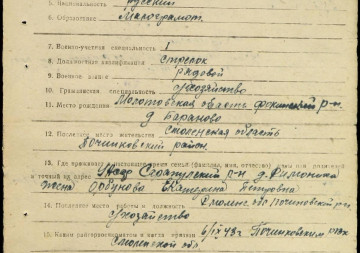 5. Национальность русский
6. Образование Малограмот.
7. Военно-учетная специальность 1
8. Должностная квалификация стрелок
9. Военное звание рядовой
10. Гражданская специальность с/хозяйство
11. Место рождения Молотовская область Фокинский р-н
д. Бараново
12. Последнее место жительства Смоленская область
Починковский район.
13. Где проживает в настоящее время семья (фамилия, имя, отчество)
и точный их адрес р-н д.
жена Екатерина Петровна
14. Последнее место работы и должность Смолен. обл Починовск р-н
с/хозяйство
15. Каким райвоенкоматом и когда призван 6/IX 43 г. Починковским РВК
Смоленской обл.